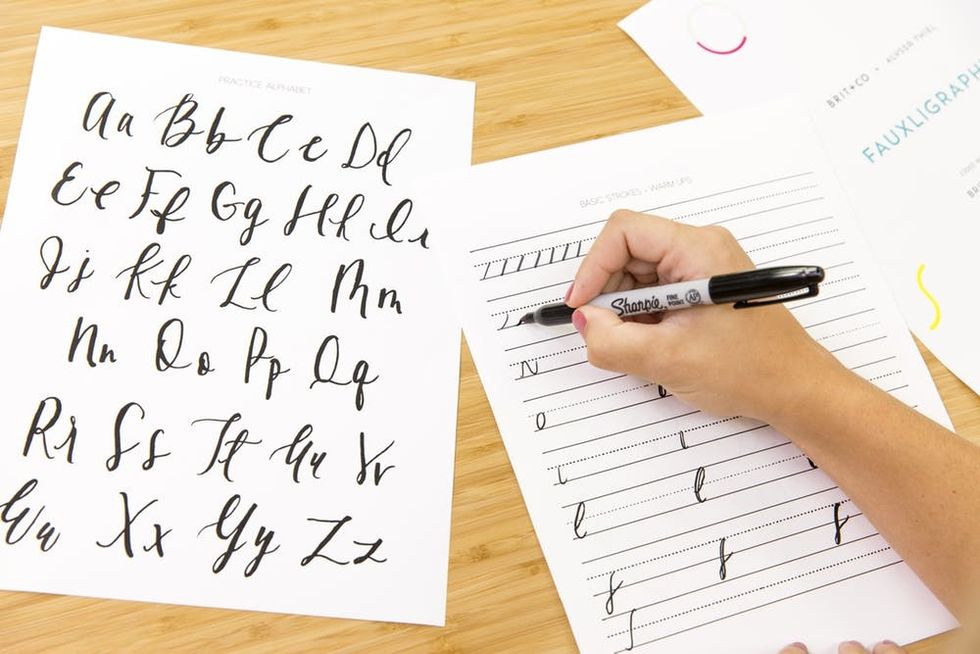 PRACTICE ALPHABET
Aa Bb Cc Dd
Ee Ff Gg Hh Ii
Jj Kk Ll Mm
Nn Oo Pp Qq
Rr Ss Tt Uu Vv
Ww Xx Yy Zz
BASIC STROKES + WARM UPS
N
o
l
l l
f f f
Sharpie
FINE POINT
AP
BRIT+CO + ALYSSA THIEL
FAUXLIGRAPH